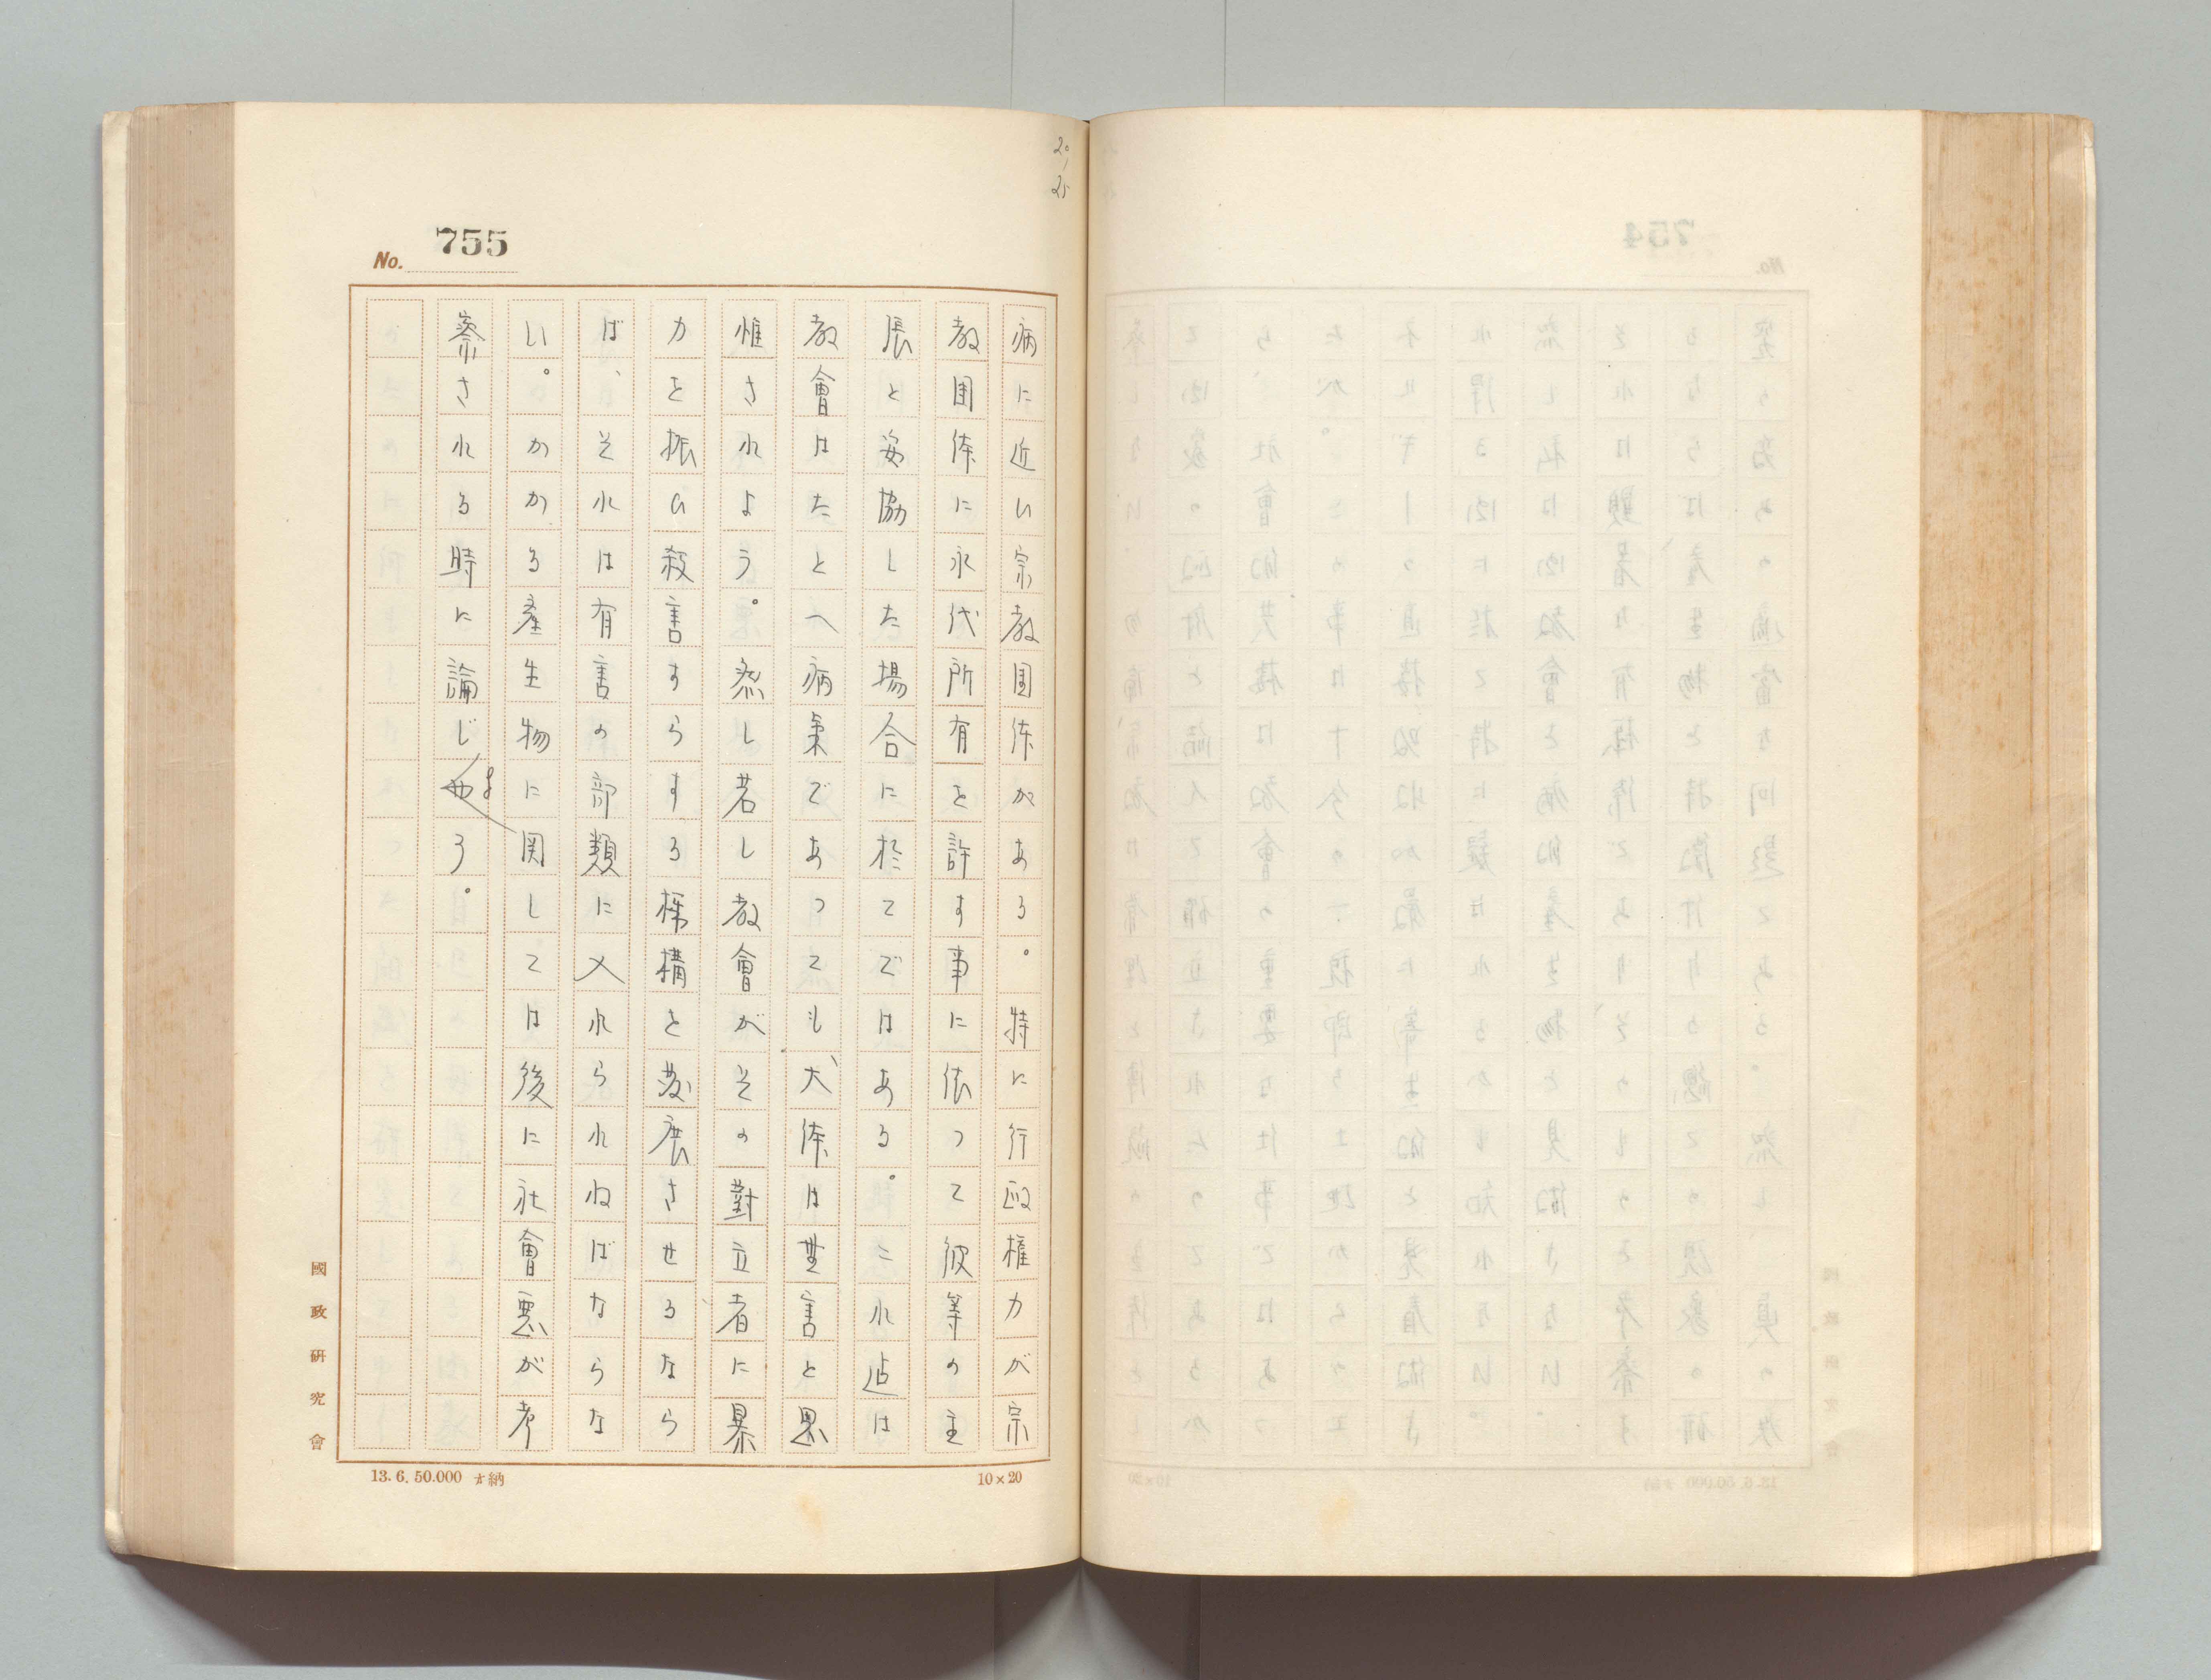 20/25
No. 755
病に近い宗教団体がある。特に行政権力が宗
教団体に永代所有を許す事に依つて彼等の主
張と妥協した場合に於てではある。これ迠は
教會はたとへ病氣であつても大体は無害と思
惟されよう。然し若し教會がその對立者に暴
力を振ひ殺害すらする機構を発展させるなら
ば、それは有害の部類に入れられねばならな
い。かかる産生物に関しては後に社會悪が考
察される時に論じよう。
國政研究會
13.6.50.000 納
10×20